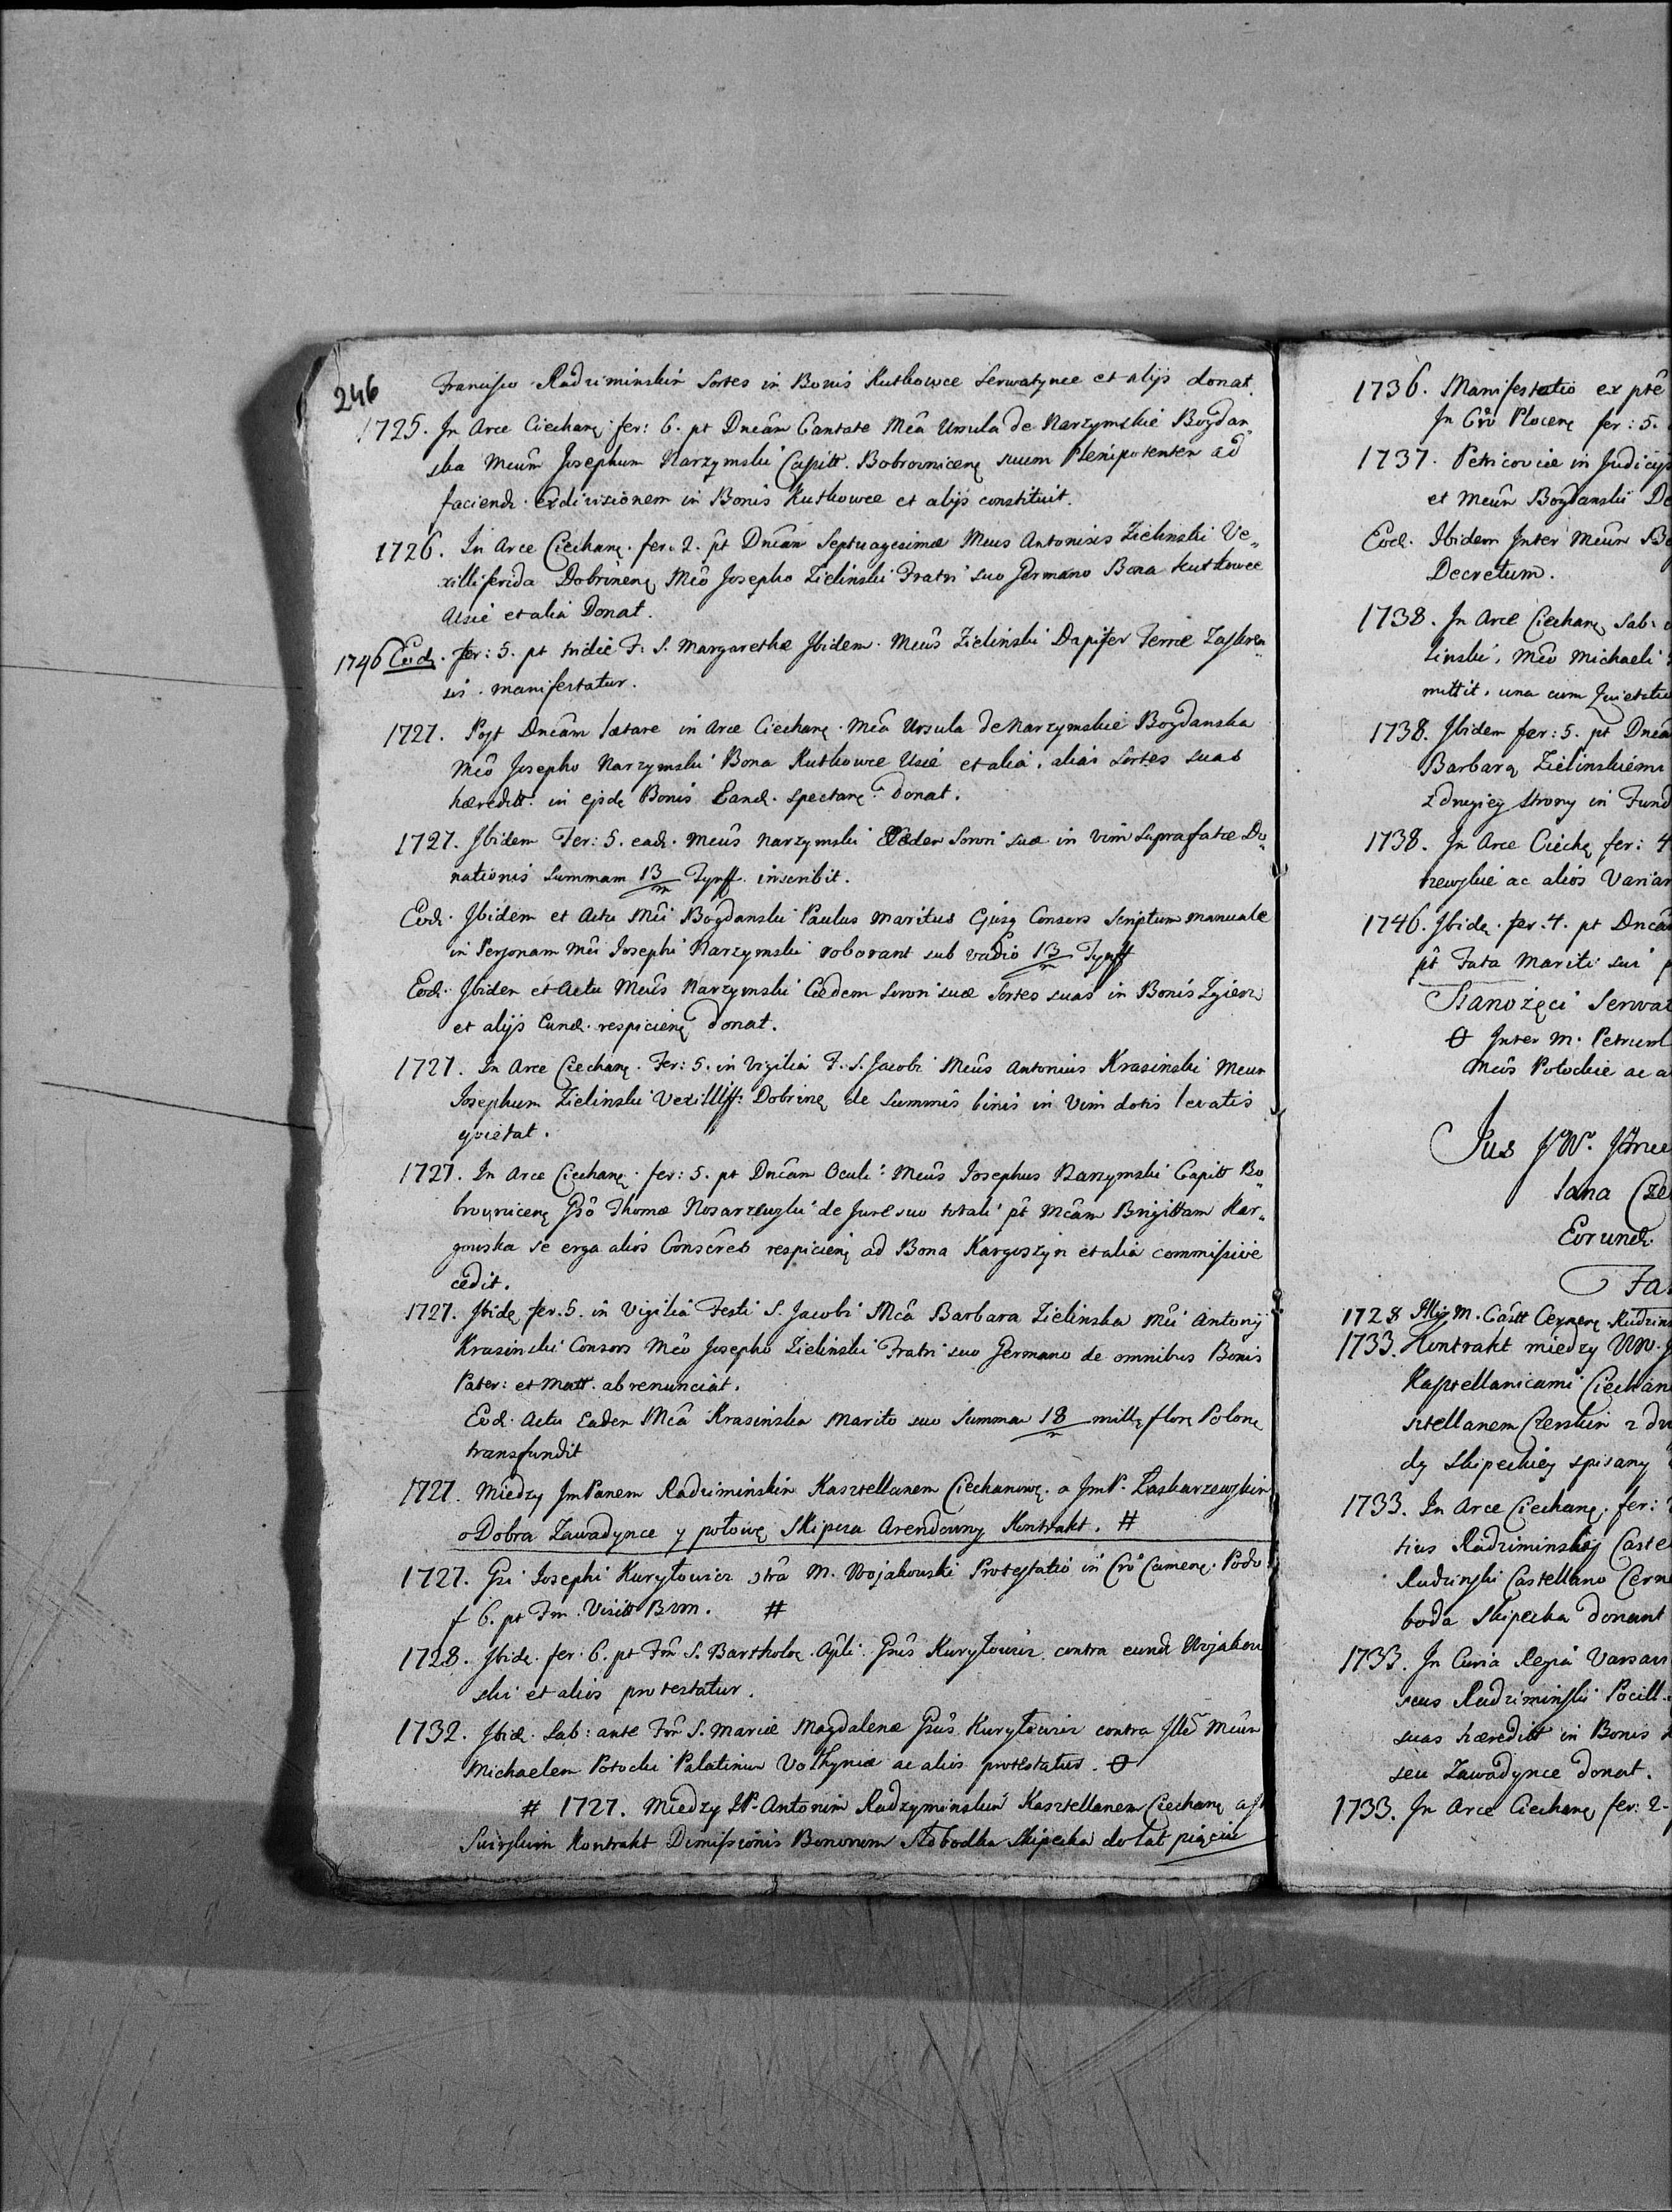 246
Francisco Radziminskin Sortes in Bonis Kutkowce Serwatynce et alijs donat.
1725. In Arce Ciechanę fer: 6. pt Dncâm Cantate Mcâ Ursula de Narzymskie Bogdan„
ska Mcûm Josephum Narzymski Capitt. Bobrownicenę suum Plenipotenten ad
faciend. exdivisionem in Bonis Kutkowce et alijs constituit.
1726. In Arce Ciechanę. fer. 2. pt Dncâm Septuagesimæ Mcus Antonius Zielinski Ve„
xilliferida Dobrinenę Mcô Josepho Zielinski Fratri suo Germano Bona Kutkowce
Usie et alia Donat.
1746 Eod. fer: 5. pt tridie F: S. Margarethæ Ibidem. Mcûs Zielinski Dapifer Terræ Zaskren„
sis. manifestatur.
1727. Post Dncâm lætare in Arce Ciechanę. Mcâ Ursula de Narzymskie Bogdanska
Mcô Josepho Narzymski Bona Kutkowce Usie et alia, alias Sortes suas
hæreditt. in ejsdę Bonis Eand. spectanę donat.
1727. Ibidem Fer: 5. ead. Mcûs Narzymski Eędem Sorori suæ in vim suprafatæ Do„
nationis Summam 13/m Tynff. inscribit.
Eod. Ibidem et Actu Mci Bogdanski Paulus Maritus Ejusq Consors Scriptum manuale
in Personam Mci Josephi Narzymski roborant sub vadio 13/m Tynff
Eod. Ibidem et Actu Mcûs Narzymski Eędem Sorori suæ Sortes suas in Bonis Zgierz
et alijs Eund. respicienę donat.
1727. In Arce Ciechanę. Fer: 5. in Vigilia F. S. Jacobi Mcûs Antonius Krasinski Mcum
Josephum Zielinski Vexilliff: Dobrinę de Summis binis in Vim dotis levatis
quietat.
1727. In Arce Ciechanę. fer: 5. pt Dncâm Oculi: Mcûs Josephus Narzymski Capitt Bo„
brownicenę Gsô Thomæ Nosarzewski de Jure suo totali pt Mcâm Brigittam Kar„
gowska se erga alios Consôres respicienę ad Bona Kargoszyn et alia commissive
cedit.
1727. Ibidę fer. 5. in Vigilia Festi S. Jacobi Mcâ Barbara Zielinska Mci Antonij
Krasinski Consors Mcô Josepho Zielinski Fratri suo Germano de omnibus Bonis
Pater: et Matt. abrenunciat.
Eod. Actu Eadem Mcâ Krasinska Marito suo Summam 18/m millę florę Polonę
transfundit
1727. Miedzy JmPanem Radziminskim Kasztellanem Ciechanowę. a JmP. Laskarzewskim
o Dobra Zawadynce y połowę Skipcza Arendowny Kontrakt. #
1727. Gsi Josephi Kuryłowicz ctrâ M. Wojakowski Protestatio in Crô Camenę. Podo
f 6. pt Fm. Visitt BVM. #
1728. Ibidę. fer. 6. pt Fm S. Bartholoę. Apli. Gsûs Kuryłowicz contra eund Wojakow
ski et alios protestatur.
1732. Ibid. Sab: ante Fm S. Mariæ Magdalenæ Gsûs Kuryłowicz contra Illê Mcûm
Michaelem Potocki Palatinum Volhyniæ ac alios protestatur.
# 1727. Miedzy JP. Antonim Radzyminskim Kasztellanem Ciechanę a
Kontrakt Dimissionis Bonorum Słobodka Skipecka do lat pięciu
1736. Manifestatio ex ptê
In Crô Plocenę fer: 5.
1737. Petricoviæ in Judicijs
et Mcûm Bogdanski De
Eod. Ibidem Inter Mcûm Bo
Decretum.
1738. In Arce Ciechanę Sab:
linski, Mcô Michaeli
mittit, una cum Quietatio
1738. Ibidem fer: 5. pt Dnca
Barbarą Zielinskiemi
z drugiey strony in Fund
1738. In Arce Ciechę fer: 4
rzewskie ac alios Varian
1746. Ibidę. fer. 4. pt Dncâ
pt Fata Mariti sui
Stanożęci Serwat
Inter M. Petrum
Mcûs Potockie ac a
Jus JW. Jmcc
Jana Cze
Eorund.
Fa
1728 M. Castt Cernenę Rudzins
1733. Kontrakt miedzy WW. J
Kasztellanicami Ciechan
sztellanem Czerskim z dru
dy Skipeckiey spisany
1733. In Arce Ciechanę. fer:
tius Radziminskij Caste
Rudzinski Castellano Cerne
boda Skipecka donant
1733. In Curia Regia Varsav
Radziminski Pocill.
suas hæreditt in Bonis
seu Zawadynce donat.
1733. In Arce Ciechanę fer: 2.